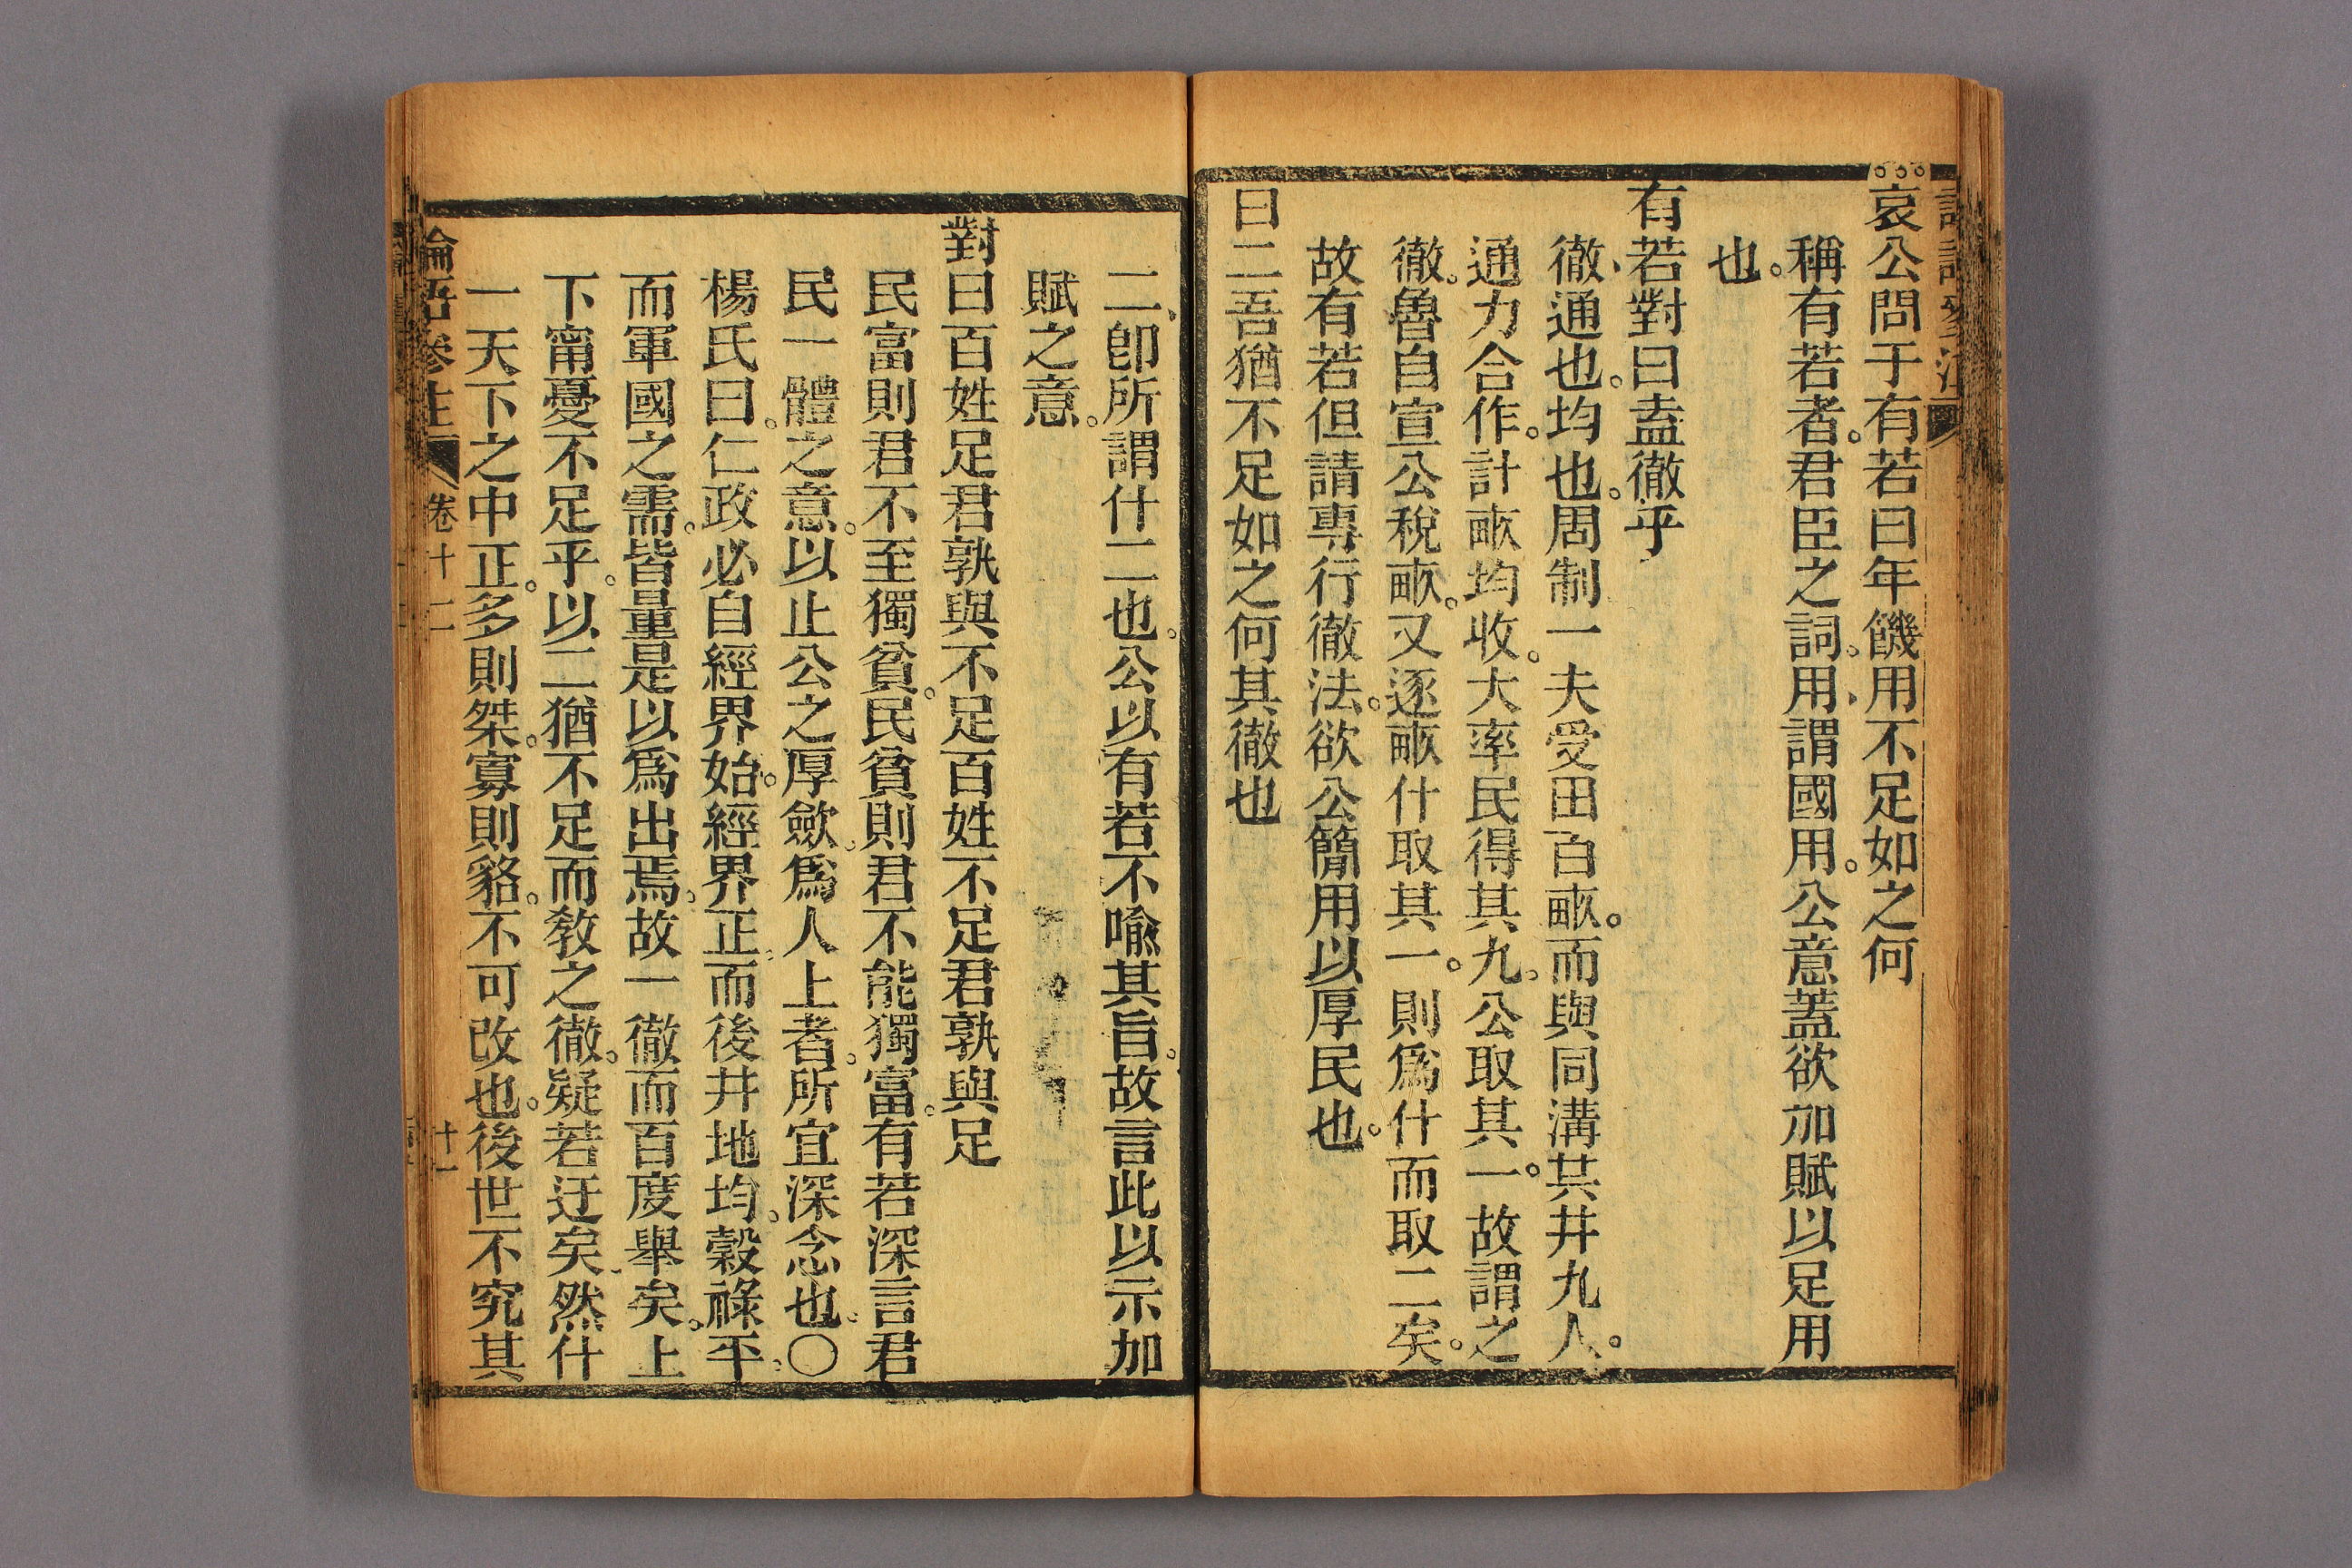 哀公問于有若曰年饑用不足如之何
稱有若者。君臣之詞。用、謂國用。公意蓋欲加賦以足用
也。
有若對曰盍徹乎
徹、通也。均也。周制一夫受田百畝。而與同溝共井九人。
通力合作。計畝均收。大率民得其九。公取其一。故謂之
徹。魯自宣公稅畝。又逐畝什取其一。則爲什而取二矣。
故有若但請專行徹法。欲公簡用以厚民也。
曰二吾猶不足如之何其徹也
二、卽所謂什二也。公以有若不喻其旨。故言此以示加
賦之意。
對曰百姓足君孰與不足百姓不足君孰與足
民富則君不至獨貧。民貧則君不能獨富。有若深言君
民一體之意。以止公之厚斂。爲人上者。所宜深念也。〇
楊氏曰。仁政必自經界始。經界正。而後井地均。穀祿平。
而軍國之需。皆量是以爲出焉。故一徹而百度舉矣。上
下甯憂不足乎。以二猶不足而敎之徹。疑若迂矣。然什
一天下之中正。多則桀。寡則貉。不可改也。後世不究其
論語參注 卷十二 十一